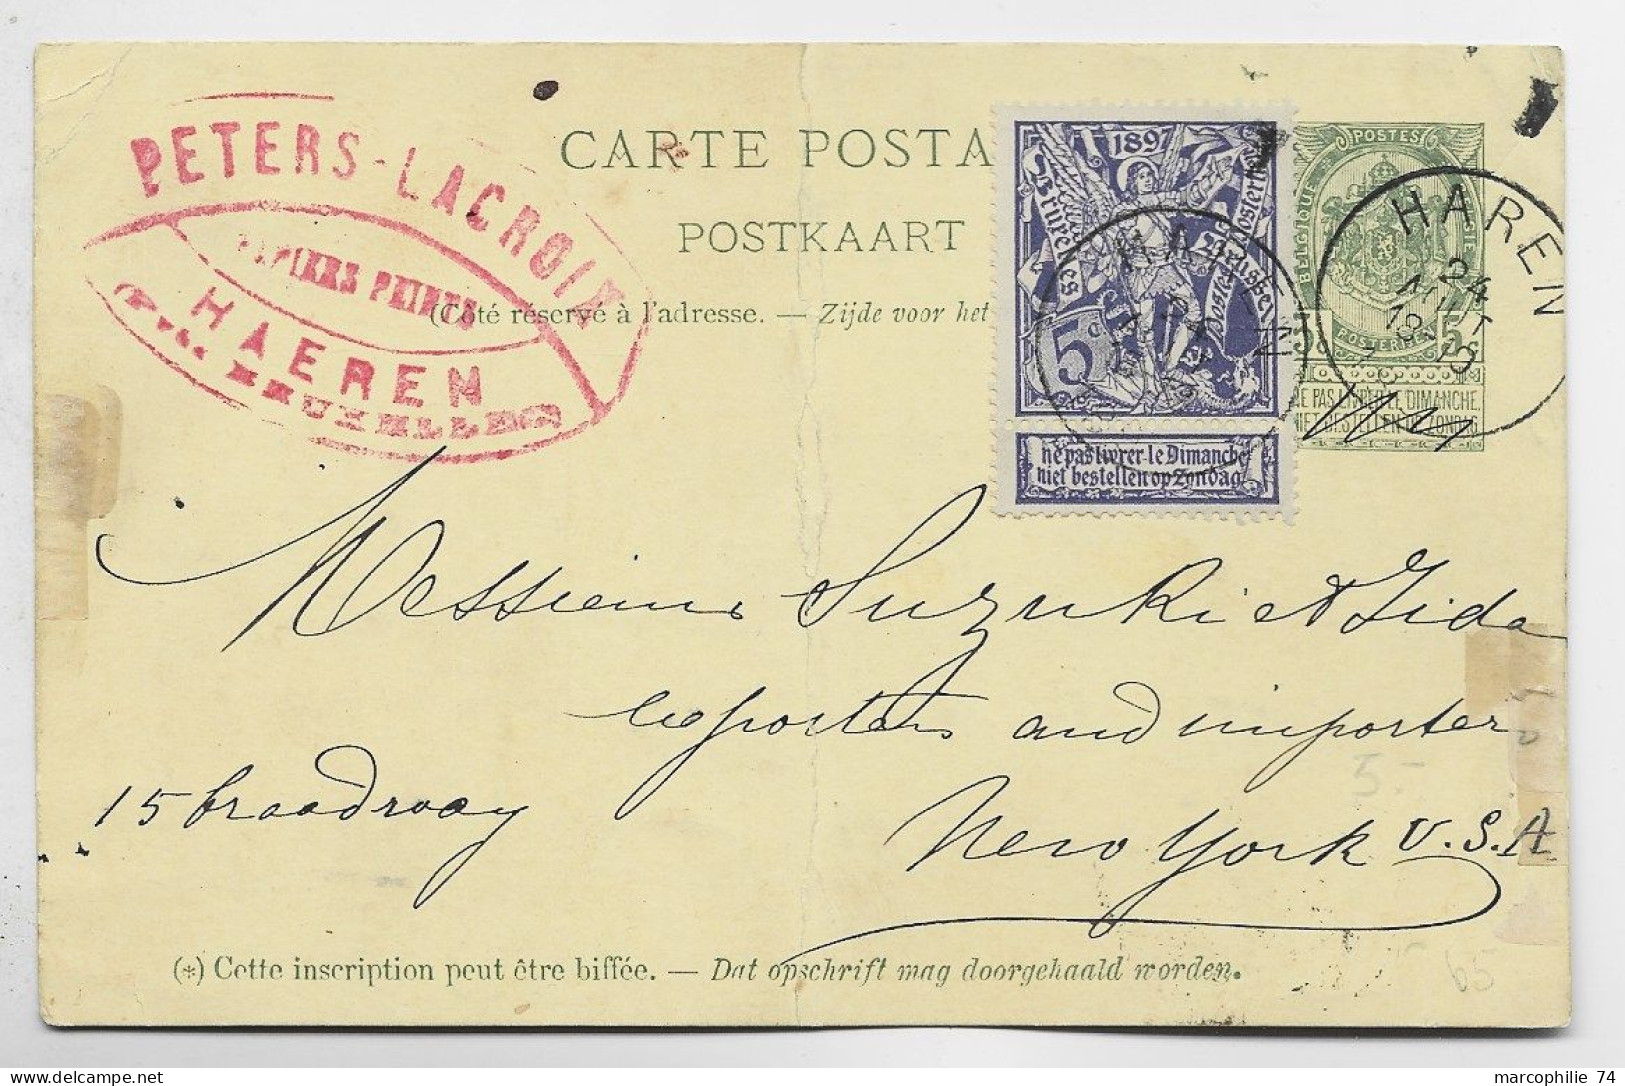 PETERS-LACROIX
PAPIERS PEINTS
HAEREN
BRUXELLES
CARTE POSTA
POSTKAART
(Côté réservé à l'adresse. — Zijde voor het
1897
Bruxelles
5
ne pas livrer le Dimanche
niet bestellen op Zondag
POSTES
BELGIQUE
POSTERIJEN
5
NE PAS LIVRER LE DIMANCHE.
NIET BESTELLEN OP ZONDAG
HAREN
24
AOUT
HAREN
Messieurs Suzuki et Iida
exporters and importer
15 broadway
New York U.S.A
5.-
65
(*) Cette inscription peut être biffée. — Dat opschrift mag doorgehaald worden.
marcophilie 74